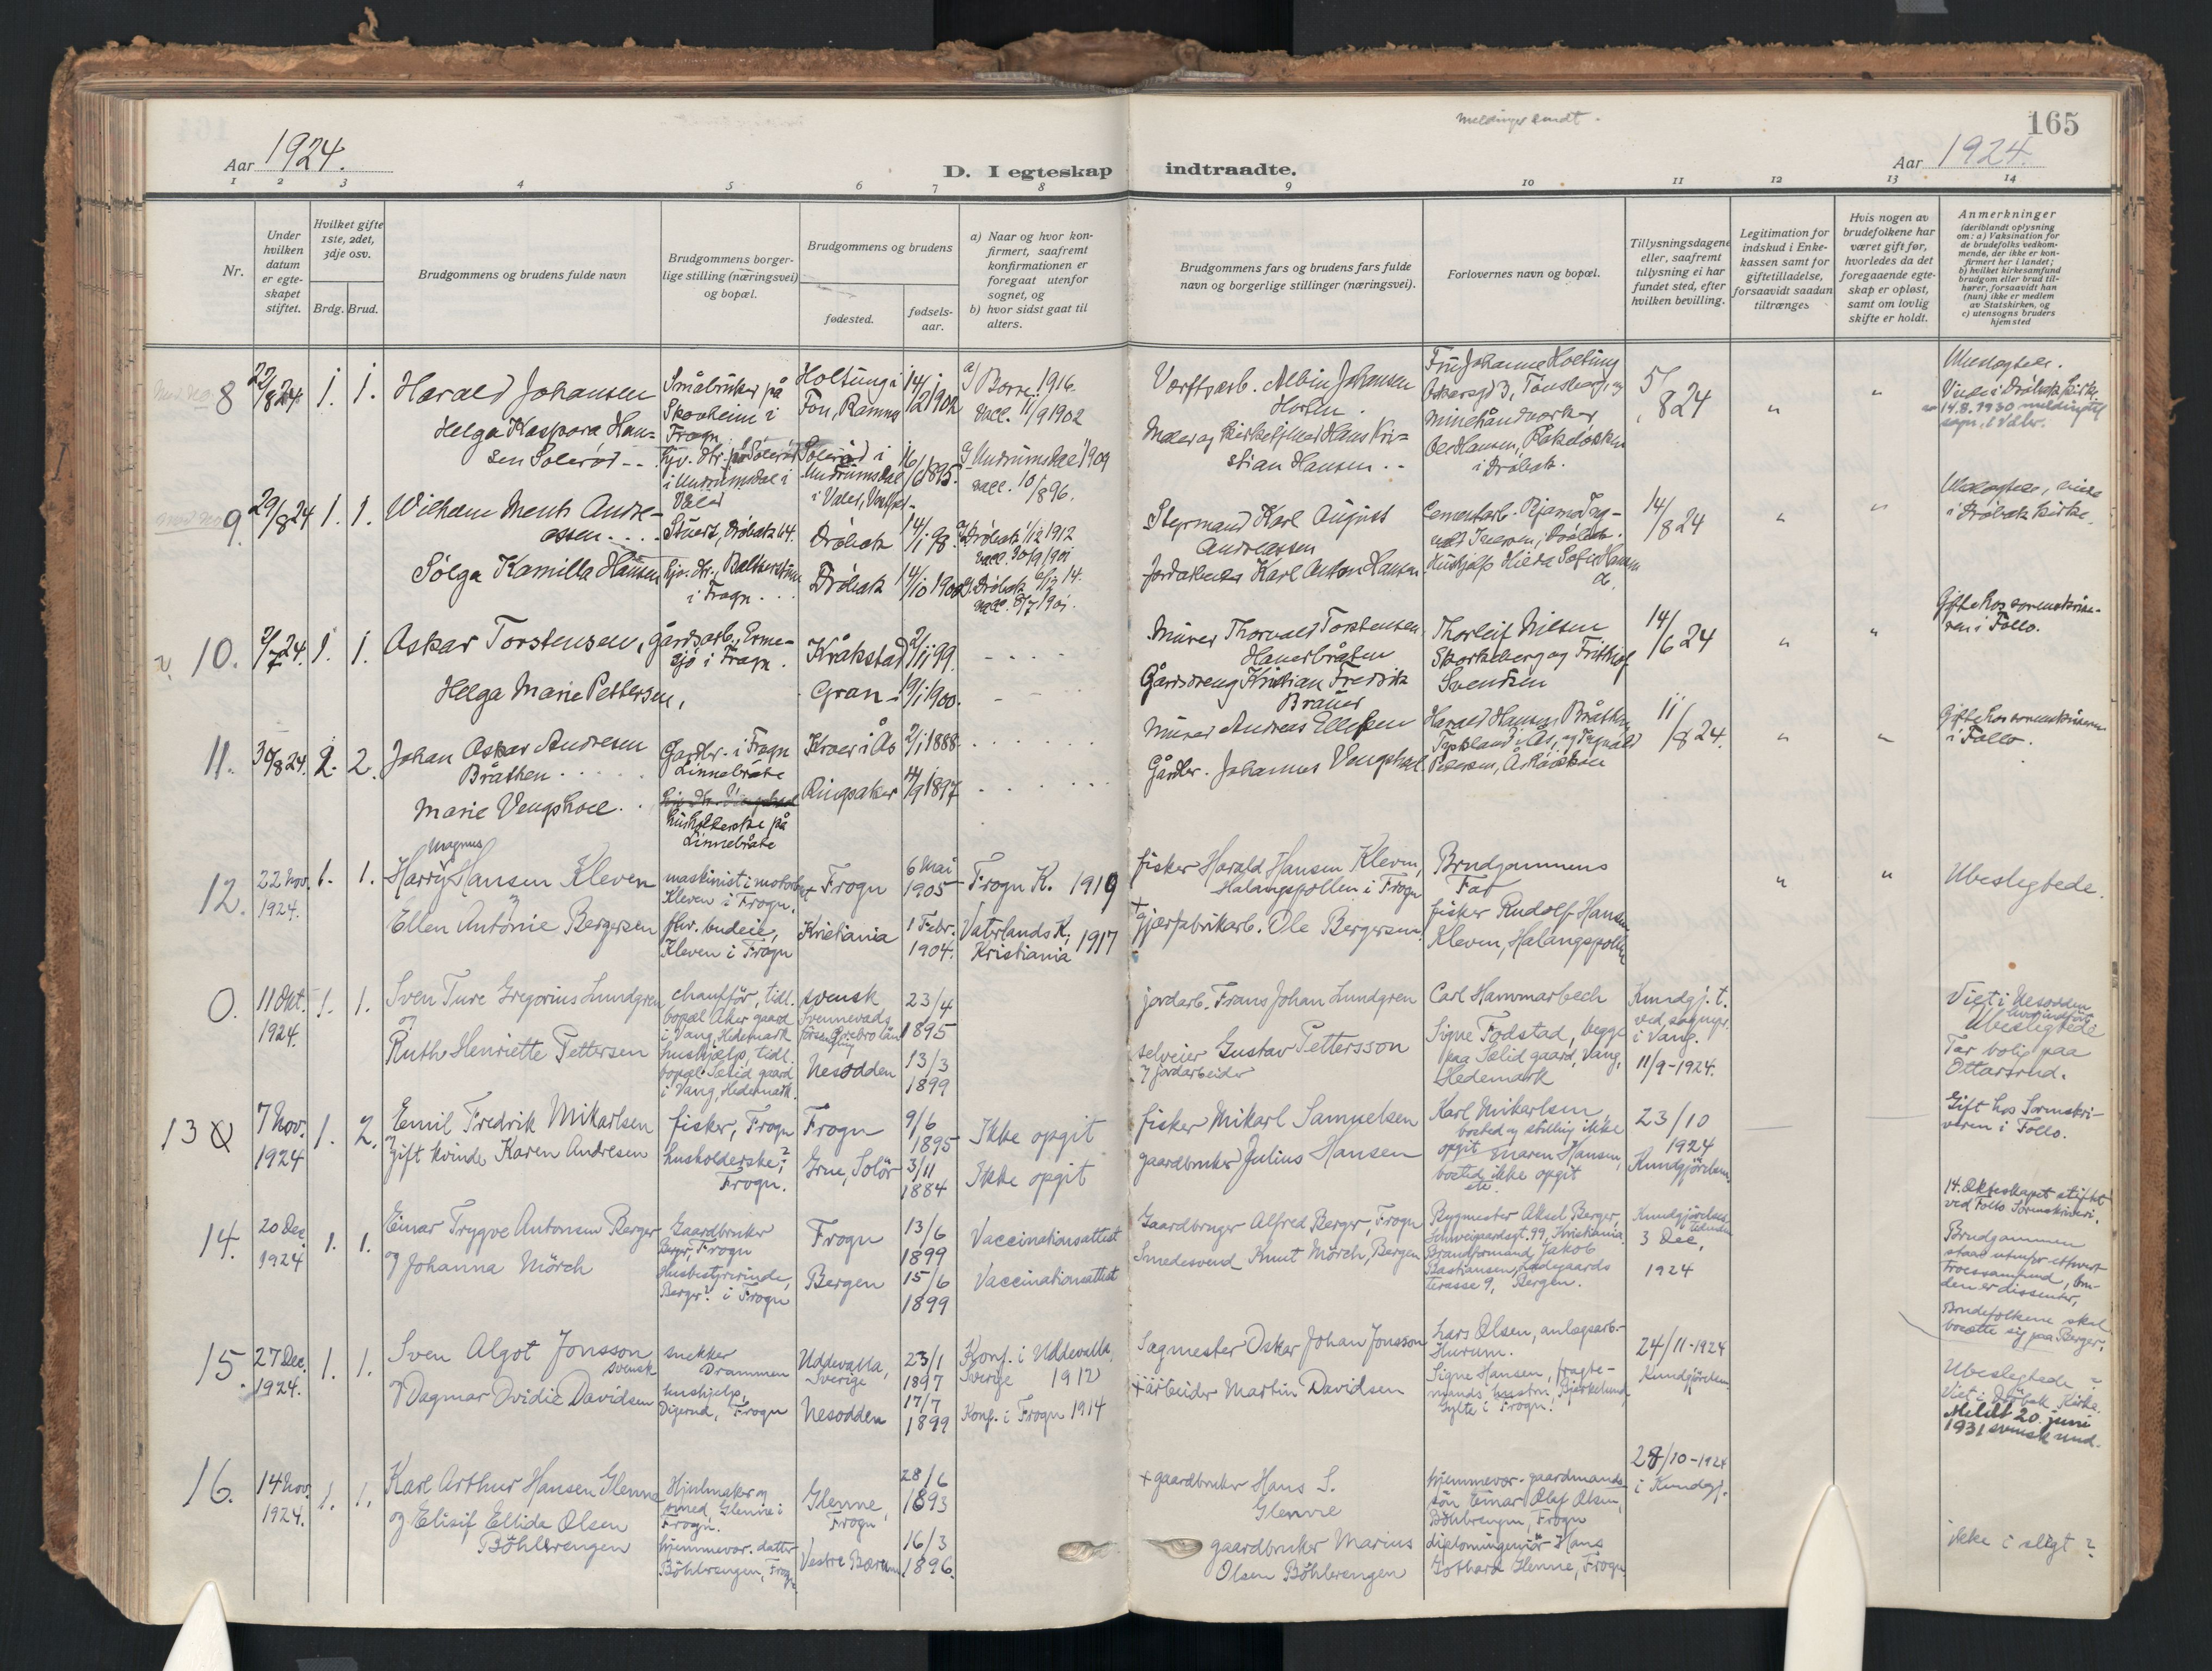 meldinger sendt.
165
Aar 1924.
D. I egteskap indtraadte.
Aar 1924.
1 2 3 4 5 6 7 8 9 10 11 12 13 14
Nr.
Under hvilken datum er egte-skapet stiftet.
Hvilket gifte 1ste, 2det, 3dje osv.
Brdg. Brud.
Brudgommens og brudens fulde navn
Brudgommens borger-lige stilling (næringsvei) og bopæl.
Brudgommens og brudens
fødested.
fødsels-aar.
a) Naar og hvor kon-firmert, saafremt konfirmationen er foregaat utenfor sognet, og
b) hvor sidst gaat til alters.
Brudgommens fars og brudens fars fulde navn og borgerlige stillinger (næringsvei).
Forlovernes navn og bopæl.
Tillysningsdagene eller, saafremt tillysning ei har fundet sted, efter hvilken bevilling.
Legitimation for indskud i Enke-kassen samt for giftetilladelse, forsaavidt saadan tiltrænges
Hvis nogen av brudefolkene har været gift før, hvorledes da det foregaaende egte-skap er opløst, samt om lovlig skifte er holdt.
Anmerkninger
(deriblandt oplysning om: a) Vaksination for de brudefolks vedkom-mende, der ikke er kon-firmert her i landet;
b) hvilket kirkesamfund brudgom eller brud til-hører, forsaavidt han (hun) ikke er medlem av Statskirken, og
c) utensogns bruders hjemsted
8 22/8 24 1. 1. Harald Johansen
Småbruker på Skovheim i Frogn
Holtung i Fon, Ramnes
14/2 1902
a) Borre 1916. vacc. 11/9 1902
Værftsarb. Albin Johansen Horten.
Fru Johanne Holtung
5/8 24
Ubeslegtede.
Viede i Drøbak kirke
14.8.1930
Helga Kaspara Han-
sen Solerød
Solerød i Undrumsdal
16/6 1895.
Undrumsdal 1909
vacc. 10/8 96.
stian Hansen
i Drøbak.
9. 29/8 24 1. 1. Wilhelm Ment Andre-
assen
Stuert, Drøbak 64.
Drøbak
14/1 98.
Drøbak 1/12 1912
Styrmand Karl August
Andreassen
14/8 24
Ubeslegtede, viede
i Drøbak kirke.
Solga Kamilla Hansen
i Frogn
Drøbak
14/10 1900
Drøbak
Karl Anton Hansen
Hushjelp Hilda Sofie Hansen
10. 2/7 24. 1. 1. Oskar Torstensen,
gårdsarb., Erme-
sjø i Frogn.
Kråkstad
2/11 99.
Murer Thorvald Torstensen
Haverbråten
Thorleif Nilsen
Skorkeberg og Frithjof
Svendsen
14/6 24
Gifte hos sorenskrive-
ren i Follo.
Helga Marie Pettersen,
Gran
19/1 1900.
Gårdsdreng Kristian Fredrik
Brauer
11. 30/8 24. 2. 2. Johan Oskar Andresen
Bråthen
Gardbr. i Frogn
Linnebråte
Kroer i Ås
2/1 1888.
Murer Andreas Ellefsen
Harald Hansen Bråthen
11/8 24.
Gifte hos sorenskriveren
i Follo.
Marie Vengshoel
husholderske på
Linnebråte
Ringsaker
4/9 1897
Gårdbr. Johannes Vengshoel
12. 22 Nov. 1924. 1. 1. Harry Magnus Hansen Kleven
maskinist i motorbåt
Kleven i Frogn.
Frogn
6 Mai 1905
Frogn K. 1919
fisker Harald Hansen Kleven,
Halangspollen i Frogn
Brudgommens
Far
Ubeslegtede.
Ellen Antonie Bergersen
fhv. budeie,
Kleven i Frogn
Kristiania
1 Febr. 1904.
Vaterlands K,
Kristiania 1917
+ gjærfabrikarb. Ole Bergersen.
fisker Rudolf Hansen
Kleven, Halangspollen
0. 11 Okt. 1924. 1. 1. Sven Ture Gregorius Lundgren
og
chaufför, tidl.
bopæl Aker gaard
i Vang, Hedemark
svensk
Svennevads
Örebro län
23/4 1895
jordarb. Frans Johan Lundgren
Carl Hammarbech
Kundgj. t.
ved sognepr.
i Vang.
11/9-1924.
Viet i Nesodden
Ubeslegtede
Tar bolig paa
Ottarsrud.
Ruth Henriette Pettersen
hushjælp, tidl.
bopæl Sælid gaard
i Vang, Hedemark.
Nesodden
13/3 1899
selveier Gustav Pettersson
? jordarbeider
Signe Fodstad, begge
paa Sælid gaard, Vang,
Hedemark
13 7 Nov. 1924 1. 2. Emil Fredrik Mikarlsen
fisker, Frogn
Frogn
9/6 1895
Ikke opgit
fisker Mikarl Samuelsen
Karl Mikarlsen,
bosted og stilling ikke
opgit
23/10 1924
Kundgjörelsen
Gift hos Sorenskri-
veren i Follo.
og gift kvinde Karen Andresen
husholderske,?
Frogn.
Grue, Solör
3/11 1884
Ikke opgit
gaardbruker Julius Hansen
Maren Hansen,
bosted ikke opgit
14. 20 Dec 1924 1. 1. Einar Trygve Antonsen Berger
Gaardbruker
Berger, Frogn
Frogn
13/6 1899
Vaccinationsattest
Gaardbruger Alfred Berger, Frogn
Bygmester Aksel Berger,
Schweigaardsgt. 99, Kristiania.
Kundgjörelsen
3 Dec, 1924
14. Ekteskapet stiftet
ved Follo Sorenskriveri.
Brudgommen
staar utenfor ethvert
Troessamfund, bru-
den er dissenter,
Brudefolkene skal
bosætte sig paa Berger.
og Johanna Mörch
Husbestyrerinde,
Berger? i Frogn
Bergen
15/6 1899
Vaccinationsattest
Smedesvend Knut Mörch, Bergen
Brandformand Jakob
Bastiansen, Ladegaards
terasse 9, Bergen.
15. 27 Dec. 1924. 1. 1. Sven Algot Jonsson
svensk
snekker
Drammen
Uddevalla,
Sverige
23/1 1897
Konf. i Uddevalla,
Sverige 1912
Sagmester Oskar Johan Jonsson
Lars Olsen, anlægsarb.
Hurum.
24/11-1924
Kundgjörelsen
Ubeslegtede ?
Viet i Dröbak Kirke.
Meldt 20. juni
1931 svensk und.
og Dagmar Ovidie Davidsen
hushjelp,
Digerud, Frogn
Nesodden
17/7 1899
Konf. i Frogn 1914
+ arbeider Martin Davidsen
Signe Hansen, fragte-
mands hustru, Bjerkelund,
Gylte i Frogn.
16. 14 Nov 1924. 1. 1. Karl Arthur Hansen Glenne
Hjulmaker og
smed, Glenne i
Frogn.
Glenne,
Frogn
28/6 1893
+ gaardbruker Hans S.
Glenne
hjemmevær. gaardmands
sön Einar Olaf Olsen,
Böhlerengen, Frogn
28/10-1924
i Kundgj.
og Elisif Ellida Olsen
Böhlerengen
hjemmevær. datter
Böhlerengen, Frogn
Vestre Bærum
16/3 1896.
gaardbruker Marius
Olsen Böhlerengen
diplomingeniör Hans
Gothard Glenne, Frogn
ikke i slegt ?